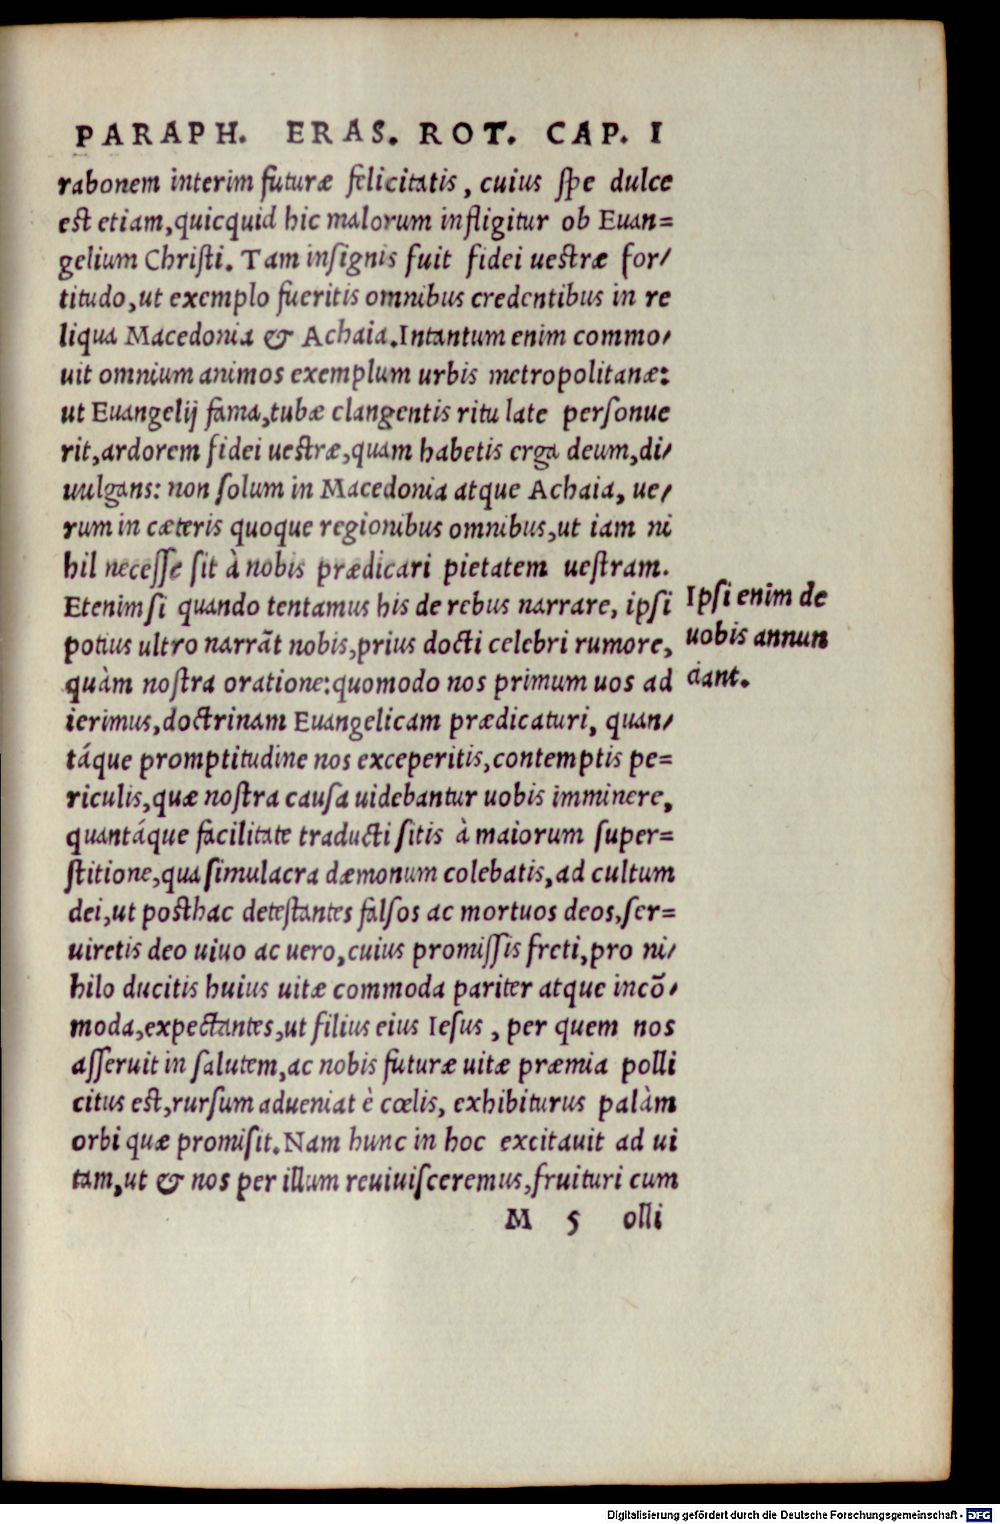 PARAPH. ERAS. ROT. CAP. I
rabonem interim futuræ felicitatis, cuius spe dulce
est etiam, quicquid hic malorum infligitur ob Euan=
gelium Christi. Tam insignis fuit fidei uestræ for/
titudo, ut exemplo fueritis omnibus credentibus in re
liqua Macedonia & Achaia. Intantum enim commo/
uit omnium animos exemplum urbis metropolitanæ:
ut Euangelij fama, tubæ clangentis ritu late personue
rit, ardorem fidei uestræ, quam habetis erga deum, di/
uulgans: non solum in Macedonia atque Achaia, ue/
rum in cæteris quoque regionibus omnibus, ut iam ni
hil necesse sit à nobis prædicari pietatem uestram.
Etenim si quando tentamus his de rebus narrare, ipsi
potius ultro narrāt nobis, prius docti celebri rumore,
quàm nostra oratione: quomodo nos primum uos ad
ierimus, doctrinam Euangelicam prædicaturi, quan/
táque promptitudine nos exceperitis, contemptis pe=
riculis, quæ nostra causa uidebantur uobis imminere,
quantáque facilitate traducti sitis à maiorum super=
stitione, qua simulacra dæmonum colebatis, ad cultum
dei, ut posthac detestantes falsos ac mortuos deos, ser=
uiretis deo uiuo ac uero, cuius promissis freti, pro ni/
hilo ducitis huius uitæ commoda pariter atque incō/
moda, expectantes, ut filius eius Iesus, per quem nos
asseruit in salutem, ac nobis futuræ uitæ præmia polli
citus est, rursum adueniat è cœlis, exhibiturus palàm
orbi quæ promisit. Nam hunc in hoc excitauit ad ui
tam, ut & nos per illum reuiuisceremus, fruituri cum
M 5 olli
Ipsi enim de
uobis annun
ciant.
Digitalisierung gefördert durch die Deutsche Forschungsgemeinschaft - DFG